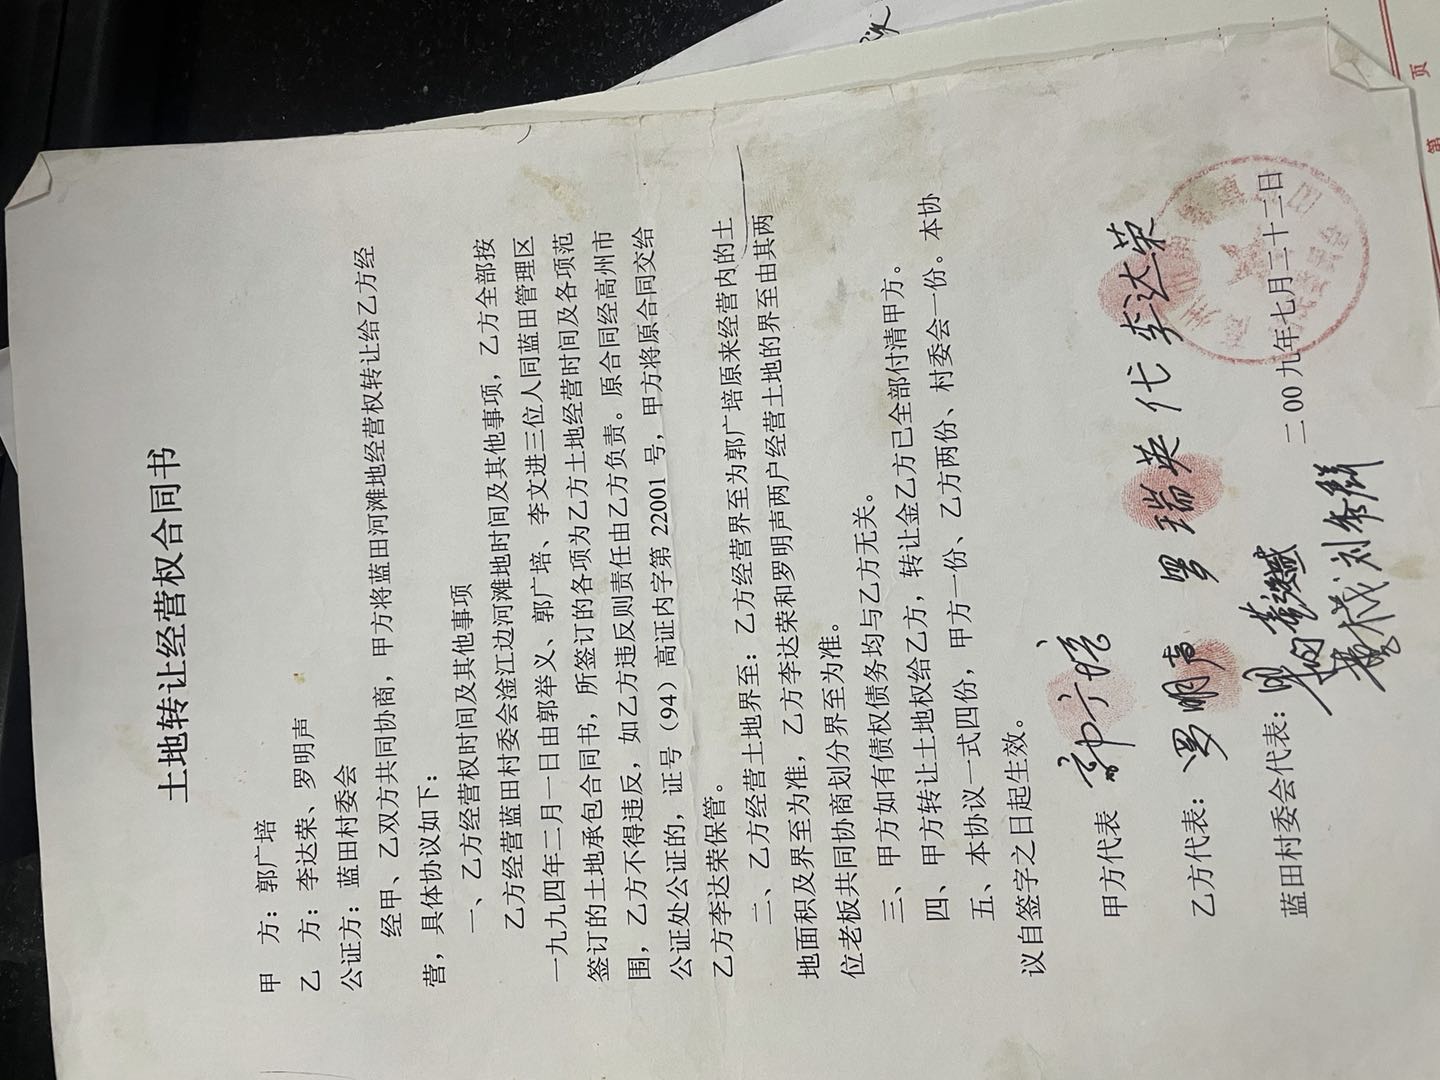 土地转让经营权合同书
甲　方：郭广培
乙　方：李达荣、罗明声
公证方：蓝田村委会
经甲、乙双方共同协商，甲方将蓝田河滩地经营权转让给乙方经
营，具体协议如下：
一、乙方经营权时间及其他事项
乙方经营蓝田村委会淦江边河滩地时间及其他事项，乙方全部按
一九九四年二月一日由郭举义、郭广培、李文进三位人同蓝田管理区
签订的土地承包合同书，所签订的各项为乙方土地经营时间及各项范
围，乙方不得违反，如乙方违反则责任由乙方负责。原合同经高州市
公证处公证的，证号（94）高证内字第 22001 号，甲方将原合同交给
乙方李达荣保管。
二、乙方经营土地界至：乙方经营界至为郭广培原来经营内的土
地面积及界至为准，乙方李达荣和罗明声两户经营土地的界至由其两
位老板共同协商划分界至为准。
三、甲方如有债权债务均与乙方无关。
四、甲方转让土地权给乙方，转让金乙方已全部付清甲方。
五、本协议一式四份，甲方一份、乙方两份、村委会一份。本协
议自签字之日起生效。
甲方代表 郭广培
乙方代表：罗明声 罗瑞英代李达荣
蓝田村委会代表：
二 00 九年七月二十二日
页
第